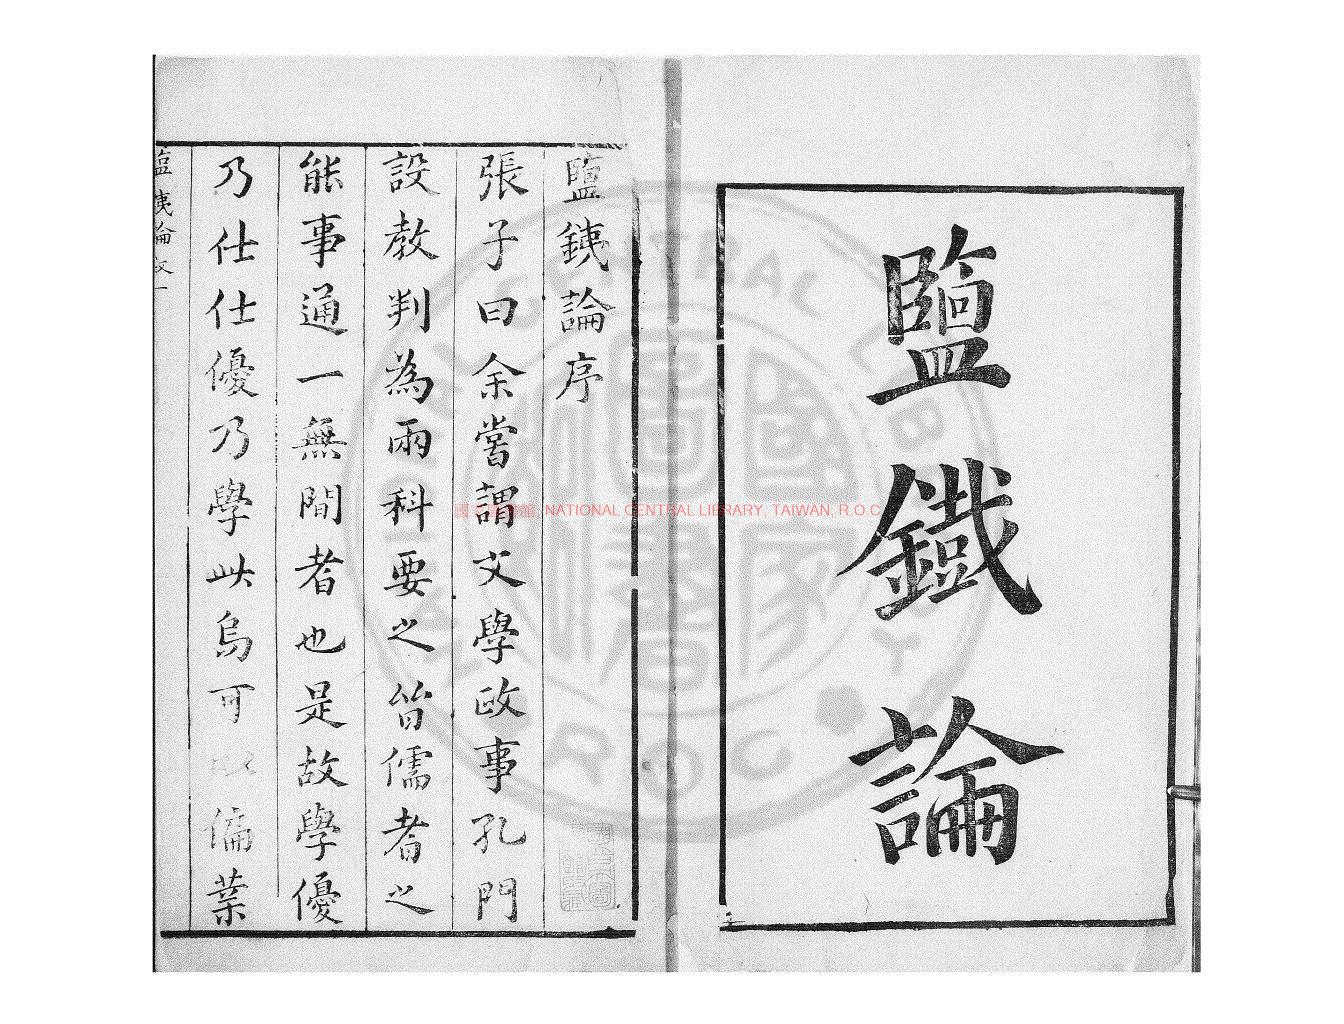 鹽鐵論
鹽銕論序
張子曰余嘗謂文學政事孔門
設教判為兩科要之皆儒者之
能事通一無間者也是故學優
乃仕仕優乃學此烏可以偏葉
鹽銕論
國家圖書館, NATIONAL CENTRAL LIBRARY, TAIWAN, R.O.C